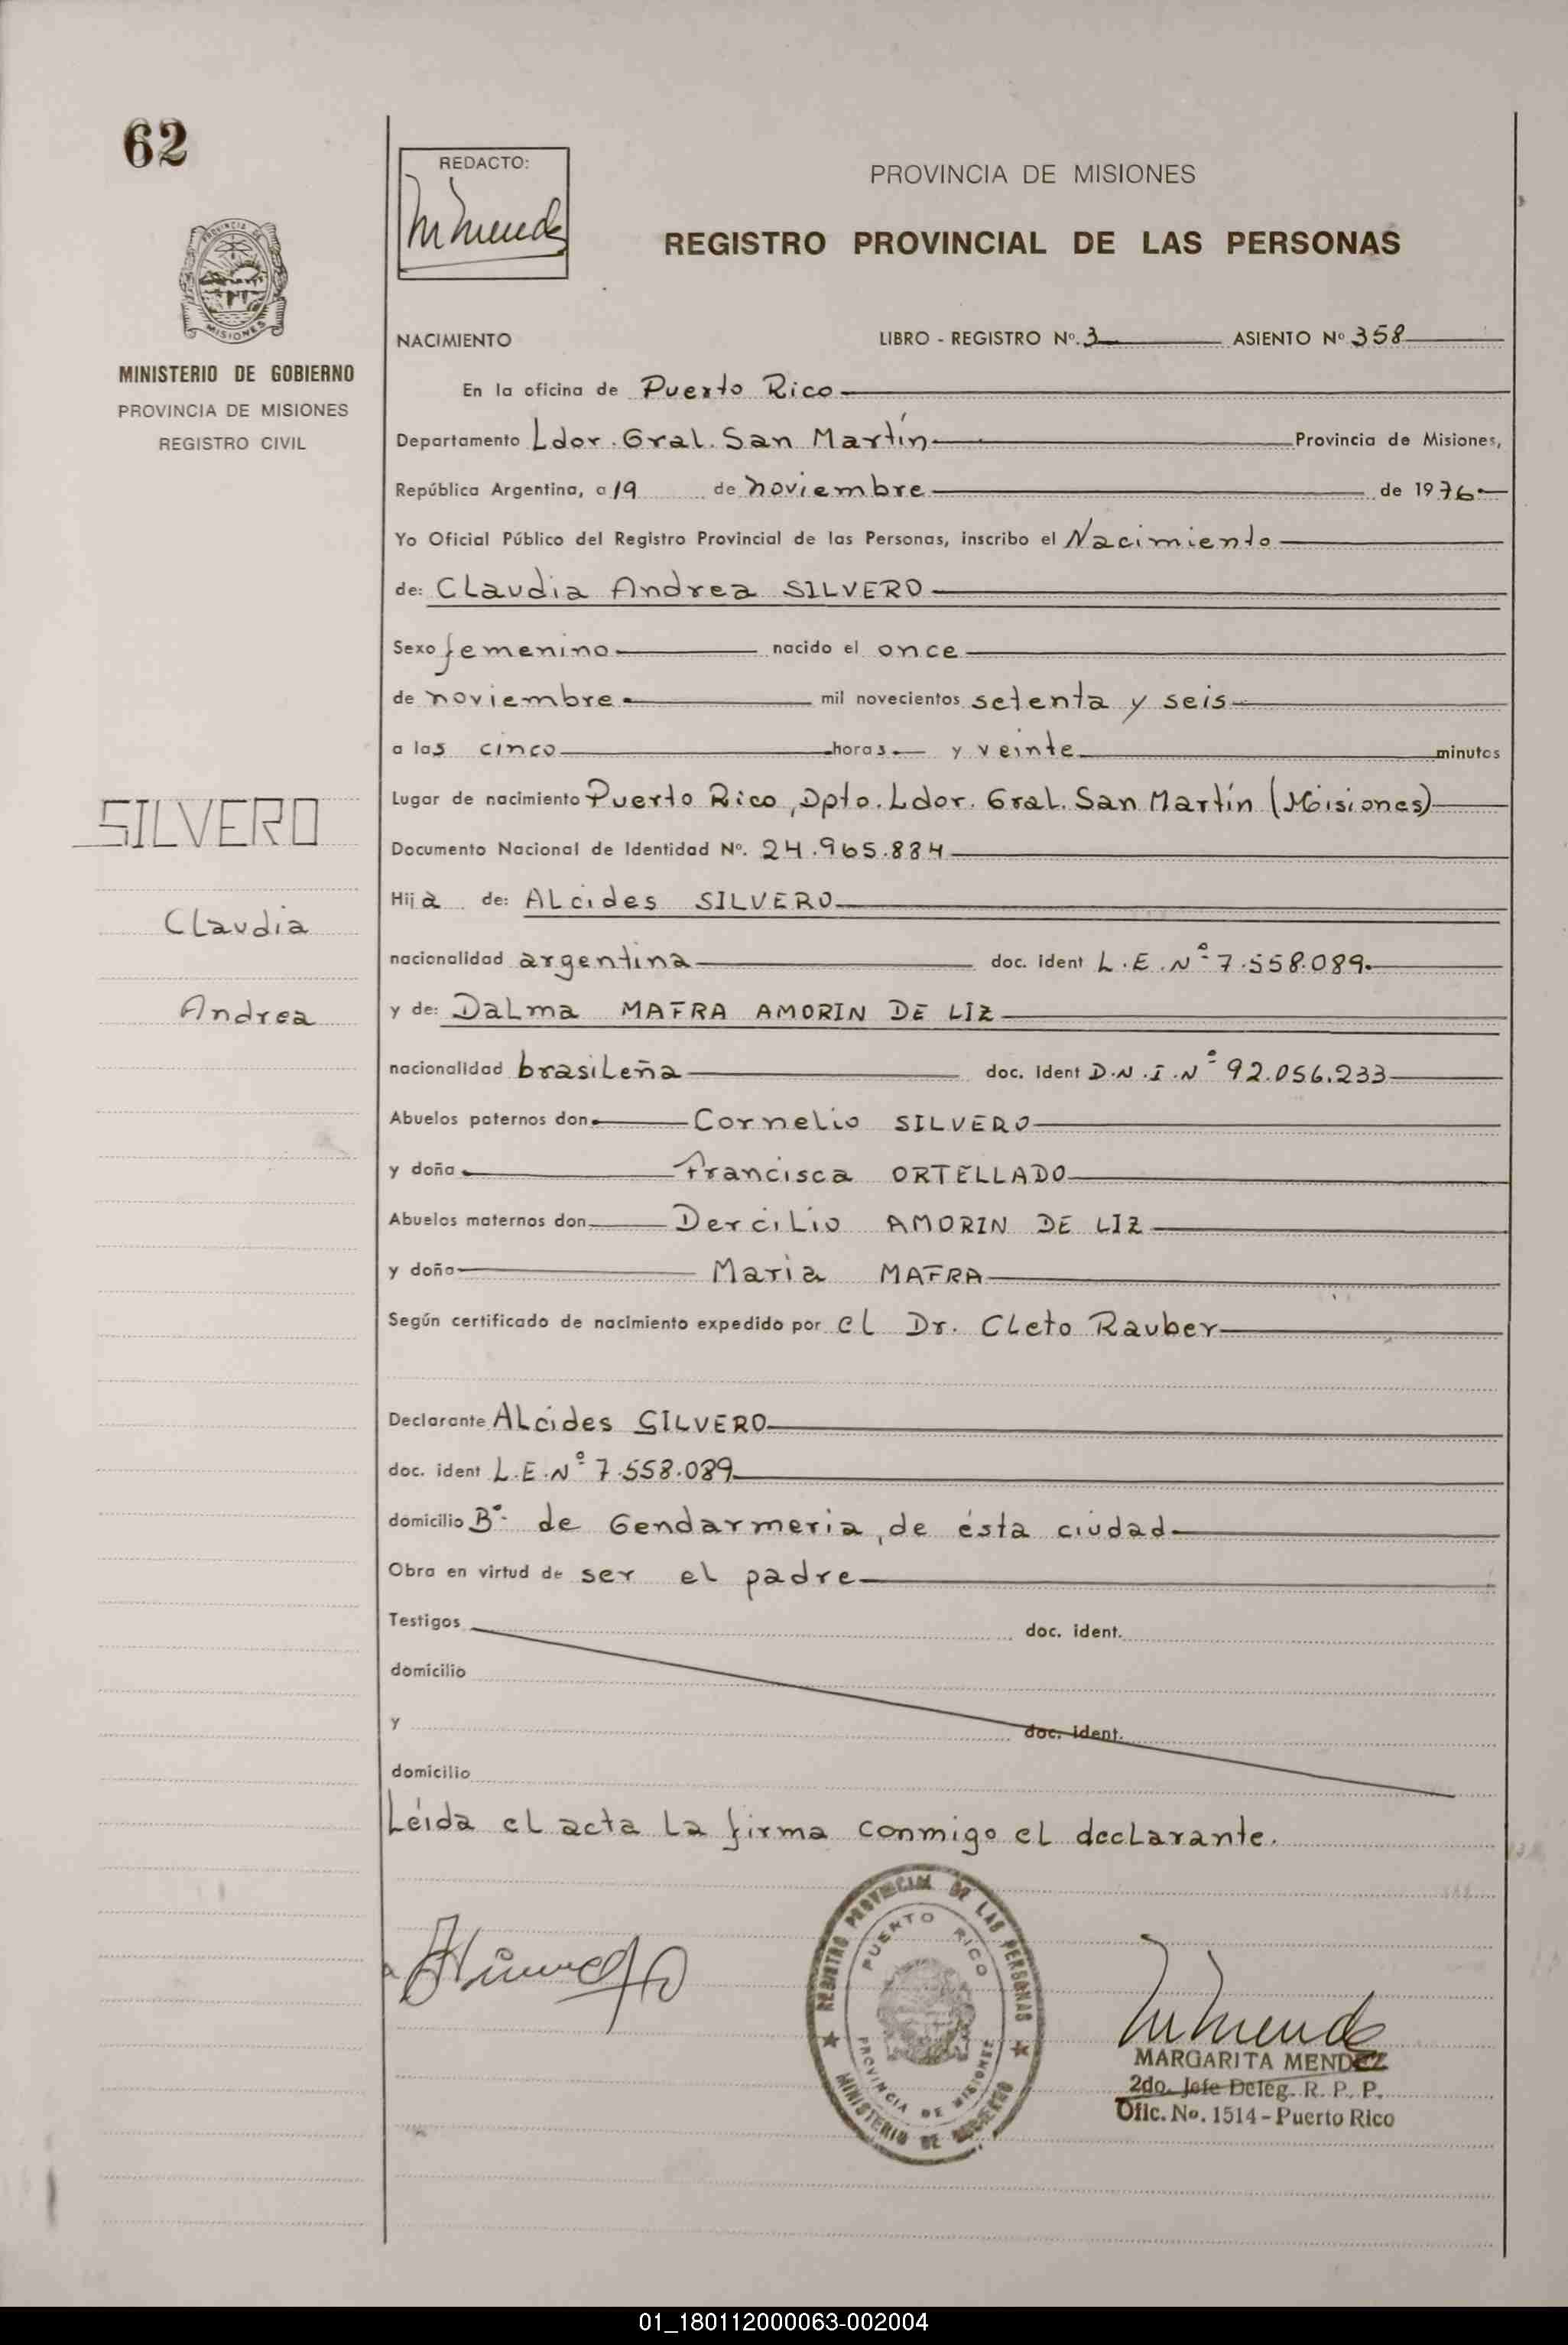 62
REDACTO:
MMendez
PROVINCIA DE MISIONES
REGISTRO PROVINCIAL DE LAS PERSONAS
PROVINCIA DE
MISIONES
MINISTERIO DE GOBIERNO
PROVINCIA DE MISIONES
REGISTRO CIVIL
NACIMIENTO LIBRO - REGISTRO Nº. 3 ASIENTO Nº 358
En la oficina de Puerto Rico
Departamento Ldor. Gral. San Martín Provincia de Misiones,
República Argentina, a 19 de noviembre de 1976
Yo Oficial Público del Registro Provincial de las Personas, inscribo el Nacimiento
de: Claudia Andrea SILVERO
Sexo femenino nacido el once
de noviembre mil novecientos setenta y seis
a las cinco horas y veinte minutos
Lugar de nacimiento Puerto Rico, Dpto. Ldor. Gral. San Martín (Misiones)
Documento Nacional de Identidad Nº. 24.965.884
Hija de: Alcides SILVERO
nacionalidad argentina doc. ident L.E.Nº 7.558.089.
y de: Dalma MAFRA AMORIN DE LIZ
nacionalidad brasileña doc. ident D.N.I.Nº 92.056.233
Abuelos paternos don Cornelio SILVERO
y doña Francisca ORTELLADO
Abuelos maternos don Dercilio AMORIN DE LIZ
y doña Maria MAFRA
Según certificado de nacimiento expedido por el Dr. Cleto Rauber
Declarante Alcides SILVERO
doc. ident L.E.Nº 7.558.089
domicilio Bº de Gendarmeria, de ésta ciudad
Obra en virtud de ser el padre
Testigos doc. ident.
domicilio
y doc. ident.
domicilio
Léida el acta la firma conmigo el declarante.
SILVERO
Claudia
Andrea
REGISTRO PROVINCIAL DE LAS PERSONAS
PUERTO RICO
PROVINCIA DE MISIONES
MINISTERIO DE GOBIERNO
MMendez
MARGARITA MENDEZ
2do. Jefe Deleg. R. P. P.
Ofic. No. 1514 - Puerto Rico
01_180112000063-002004